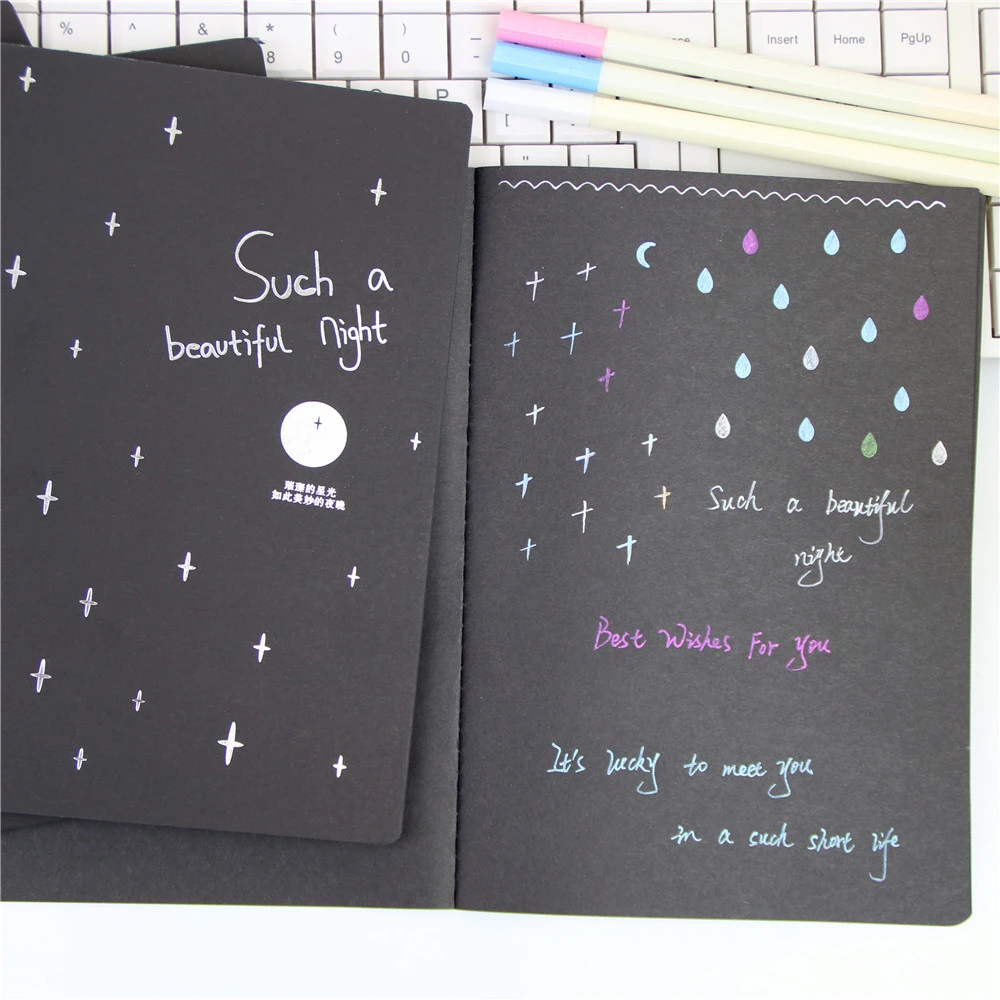 % ^ & * ( ) _
8 9 0
Insert Home PgUp
O P
[
"
Such a
beautiful Night
璀璨的星光
如此美妙的夜晚
Such a beautiful
night
Best Wishes For you
It's lucky to meet you
in a such short life